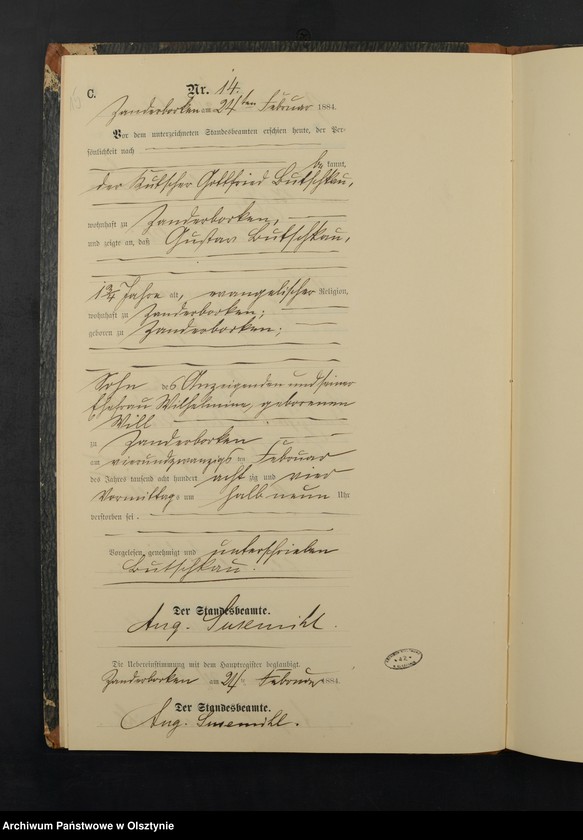 C.
Nr. 14.
Zanderborken am 24ten Februar 1884.
Vor dem unterzeichneten Standesbeamten erschien heute, der Per-
sönlichkeit nach
be kannt,
der Kutscher Gottfried Butschkau,
wohnhaft zu Zanderborken,
und zeigte an, daß Gustav Butschkau,
12 Jahre alt, evangelischer Religion,
wohnhaft zu Zanderborken;
geboren zu Zanderborken;
Sohn des Anzeigenden und seiner
Ehefrau Wilhelmine, geborenen
Will
zu Zanderborken
am vierundzwanzigs ten Februar
des Jahres tausend acht hundert acht zig und vier
Vormittags um halb neun Uhr
verstorben sei.
Vorgelesen, genehmigt und unterschrieben
Butschkau.
Der Standesbeamte.
Aug. Susemihl.
Die Uebereinstimmung mit dem Hauptregister beglaubigt.
Zanderborken am 24ten Februar 1884.
Der Standesbeamte.
Aug. Susemihl.
Archiwum Państwowe w Olsztynie